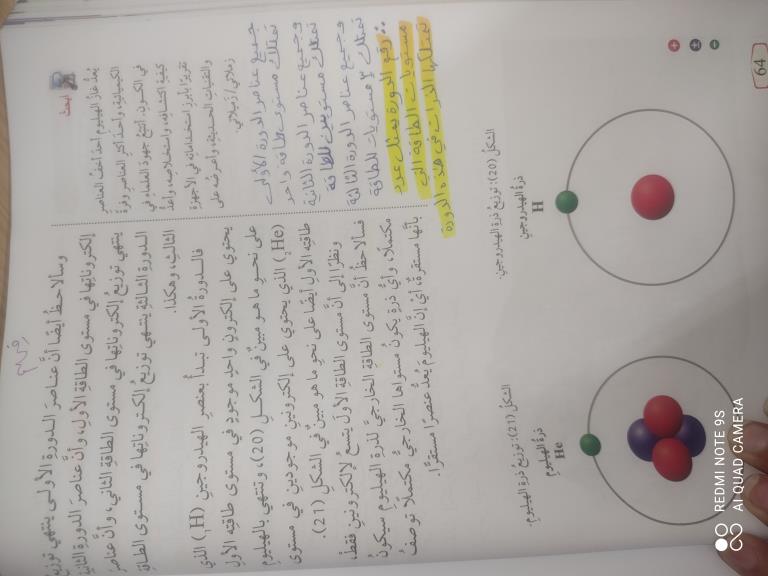 وسألاحظُ أيضًا أنَّ عناصرَ الدورةِ الأولى ينتهي توزيعُ
إلكتروناتِها في مستوى الطاقةِ الأولِ، وأنَّ عناصرَ الدورةِ الثانيةِ
ينتهي توزيعُ إلكتروناتِها في مستوى الطاقةِ الثاني، وأنَّ عناصرَ
الدورةِ الثالثةِ ينتهي توزيعُ إلكتروناتِها في مستوى الطاقةِ
الثالثِ، وهكذا.
فالدورةُ الأولى تبدأُ بعنصرِ الهيدروجينِ (₁H) الذي
يحتوي على إلكترونٍ واحدٍ موجودٍ في مستوى طاقتِه الأولِ
على نحوِ ما هو مبينٌ في الشكلِ (20)، وتنتهي بالهيليومِ
(₂He) الذي يحتوي على إلكترونينِ موجودينِ في مستوى
طاقتِه الأولِ أيضًا على نحوِ ما هو مبينٌ في الشكلِ (21).
ونظرًا إلى أنَّ مستوى الطاقةِ الأولَ يتسعُ لإلكترونينِ فقطْ،
فسألاحظُ أنَّ مستوى الطاقةِ الخارجيَّ لذرةِ الهيليومِ سيكونُ
مكتملًا، وأيُّ ذرةٍ يكونُ مستواها الخارجيُّ مكتملًا توصفُ
بأنَّها مستقرةٌ، أي إنَّ الهيليومَ يُعدُّ عنصرًا مستقرًّا.
ابحث
يُعدُّ غازُ الهيليومِ أحدَ أخفِّ العناصرِ
الكيميائيةِ، وأحدَ أكثرِ العناصرِ وفرةً
في الكونِ. أتتبعُ جهودَ العلماءِ في
كيفيةِ اكتشافِه، واستخلاصِه، وأُعدُّ
تقريرًا يُبرزُ استخداماتِه في الأجهزةِ
والتقنياتِ الحديثةِ، وأعرضُه على
زملائي/ زميلاتي.
جميع عناصر الدورة الأولى
تمتلك مستوى طاقة واحد
وجميع عناصر الدورة الثانية
تمتلك مستويين للطاقة
وجميع عناصر الدورة الثالثة
تمتلك ٣ مستويات للطاقة
∴ رقم الدورة يمثل عدد
مستويات الطاقة التي
تمتلكها الذرات في هذه الدورة
الشكلُ (21): توزيعُ ذرةِ الهيليومِ.
ذرةُ الهيليومِ
He
الشكلُ (20): توزيعُ ذرةِ الهيدروجينِ.
ذرةُ الهيدروجينِ
H
+
±
−
64
REDMI NOTE 9S
AI QUAD CAMERA